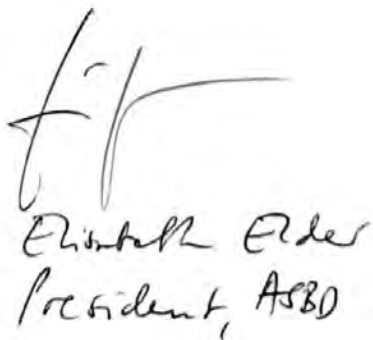 Elisabeth Elder
President, ASBD